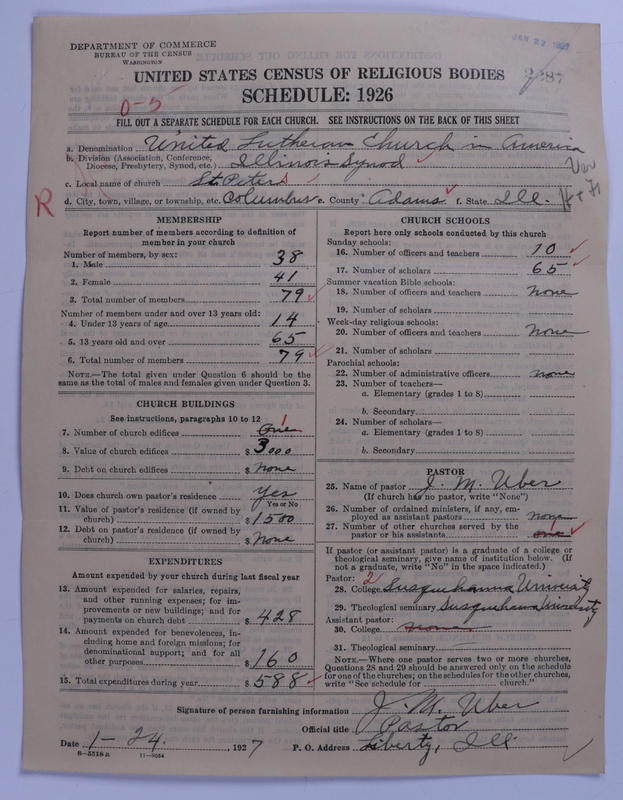 DEPARTMENT OF COMMERCE
BUREAU OF THE CENSUS
WASHINGTON
JAN 27 1927
UNITED STATES CENSUS OF RELIGIOUS BODIES
SCHEDULE: 1926
0-5
FILL OUT A SEPARATE SCHEDULE FOR EACH CHURCH. SEE INSTRUCTIONS ON THE BACK OF THIS SHEET
a. Denomination United Lutheran Church in America
b. Division (Association, Conference,
Diocese, Presbytery, Synod, etc.) Illinois Synod
c. Local name of church St. Peters
R
d. City, town, village, or township, etc. Columbus e. County Adams f. State Ill.
MEMBERSHIP
Report number of members according to definition of
member in your church
Number of members, by sex:
1. Male 38
2. Female 41
3. Total number of members 79
Number of members under and over 13 years old:
4. Under 13 years of age 14
5. 13 years old and over 65
6. Total number of members 79
NOTE.—The total given under Question 6 should be the
same as the total of males and females given under Question 3.
CHURCH BUILDINGS
See instructions, paragraphs 10 to 12
7. Number of church edifices One 1
8. Value of church edifices $ 3000
9. Debt on church edifices $ None
10. Does church own pastor's residence Yes
Yes or No
11. Value of pastor's residence (if owned by
church) $ 1500
12. Debt on pastor's residence (if owned by
church) $ None
EXPENDITURES
Amount expended by your church during last fiscal year
13. Amount expended for salaries, repairs,
and other running expenses; for im-
provements or new buildings; and for
payments on church debt $ 428
14. Amount expended for benevolences, in-
cluding home and foreign missions; for
denominational support; and for all
other purposes $ 160
15. Total expenditures during year $ 588
CHURCH SCHOOLS
Report here only schools conducted by this church
Sunday schools:
16. Number of officers and teachers 10
17. Number of scholars 65
Summer vacation Bible schools:
18. Number of officers and teachers none
19. Number of scholars
Week-day religious schools:
20. Number of officers and teachers none
21. Number of scholars
Parochial schools:
22. Number of administrative officers none
23. Number of teachers—
a. Elementary (grades 1 to 8)
b. Secondary
24. Number of scholars—
a. Elementary (grades 1 to 8)
b. Secondary
PASTOR
25. Name of pastor J. M. Uber
(If church has no pastor, write "None")
26. Number of ordained ministers, if any, em-
ployed as assistant pastors none
27. Number of other churches served by the
pastor or his assistants one
If pastor (or assistant pastor) is a graduate of a college or
theological seminary, give name of institution below. (If
not a graduate, write "No" in the space indicated.)
Pastor: 2
28. College Susquehanna University
29. Theological seminary Susquehanna University
Assistant pastor:
30. College none
31. Theological seminary
NOTE.—Where one pastor serves two or more churches,
Questions 28 and 29 should be answered only on the schedule
for one of the churches; on the schedules for the other churches,
write "See schedule for church."
Signature of person furnishing information J. M. Uber
Official title Pastor
Date 1-24, 1927 P. O. Address Liberty, Ill
8-5518a 11-9054